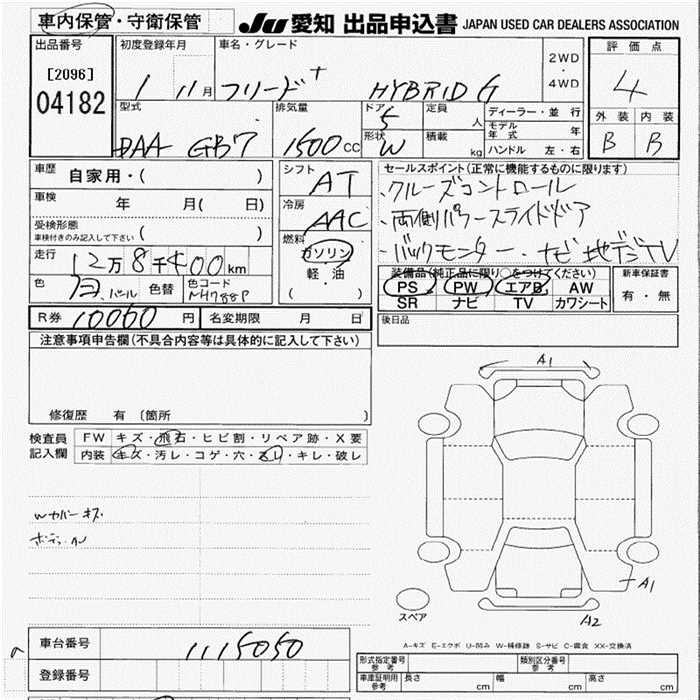 車内保管・守衛保管 JU 愛知 出品申込書 JAPAN USED CAR DEALERS ASSOCIATION
出品番号 初度登録年月 車名・グレード 2WD ・ 4WD 評価点
[2096] 1 11月 フリード+ HYBRID G 4
04182 型式 排気量 ドア 5 定員 人 ディーラー・並行 外装 内装
DAA GB7 1500cc 形状 W 積載 kg モデル年式 年 B B
ハンドル 左・右
車歴 自家用・( ) シフト AT セールスポイント(正常に機能するものに限ります)
車検 年 月( 日) 冷房 AAC ・クルーズコントロール
受検形態 車検付きのみ記入して下さい ( ) ・両側パワースライドドア
走行 12万8千400km 燃料 ガソリン ・バックモニター・ナビ地デジTV
色 白パール 色替 色コード NH788P 軽・油 ( ・ )
装備品(純正品に限り○をつけてください) 新車保証書
PS PW エアB AW 有・無
SR ナビ TV カワシート
R券 10060円 名変期限 月 日 後日品
注意事項申告欄(不具合内容等は具体的に記入して下さい)
A1
修復歴 有(箇所 )
検査員 FW キズ・飛石・ヒビ割・リペア跡・X要
記入欄 内装 キズ・汚レ・コゲ・穴・スリ・キレ・破レ
Wカバーキズ
A1
スペア
A2
車台番号 1115050
A-キズ E-エクボ U-凹み W-補修跡 S-サビ C-腐食 XX-交換済
登録番号 形式指定番号 参考 類別区分番号 参考
車庫証明用 参考 長さ cm 幅 cm 高さ cm